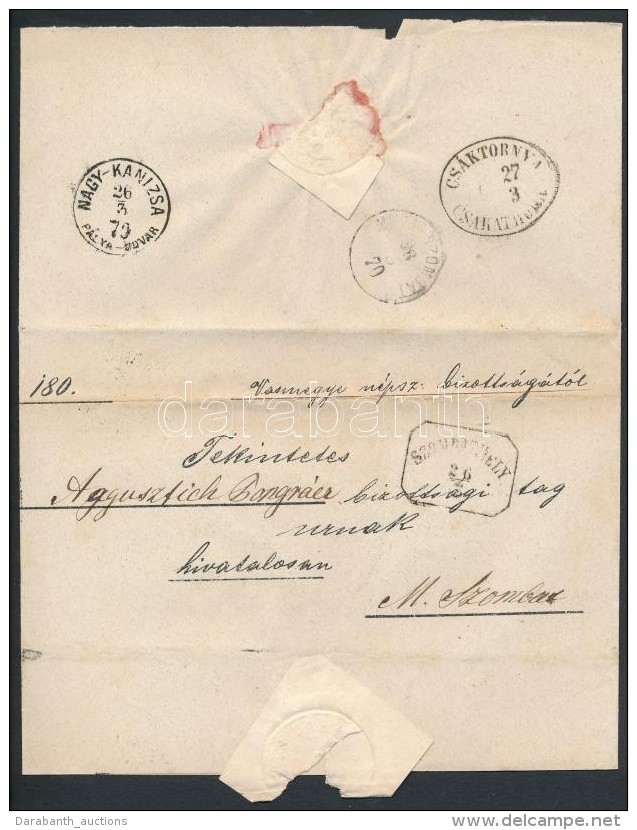 NAGY-KANIZSA
26
3
70
PÁLYA-UDVAR
CSÁKTORNYA
27
3
CSAKATHURN
70
180. Vasmegye népsz. bizottságától
darabanth
Tekintetes
SZOMBATHELY
26
Aggusztich Pongrácz bizottsági tag
urnak
hivatalosan
M. Szombat
Darabanth_auctions
delcampe.net